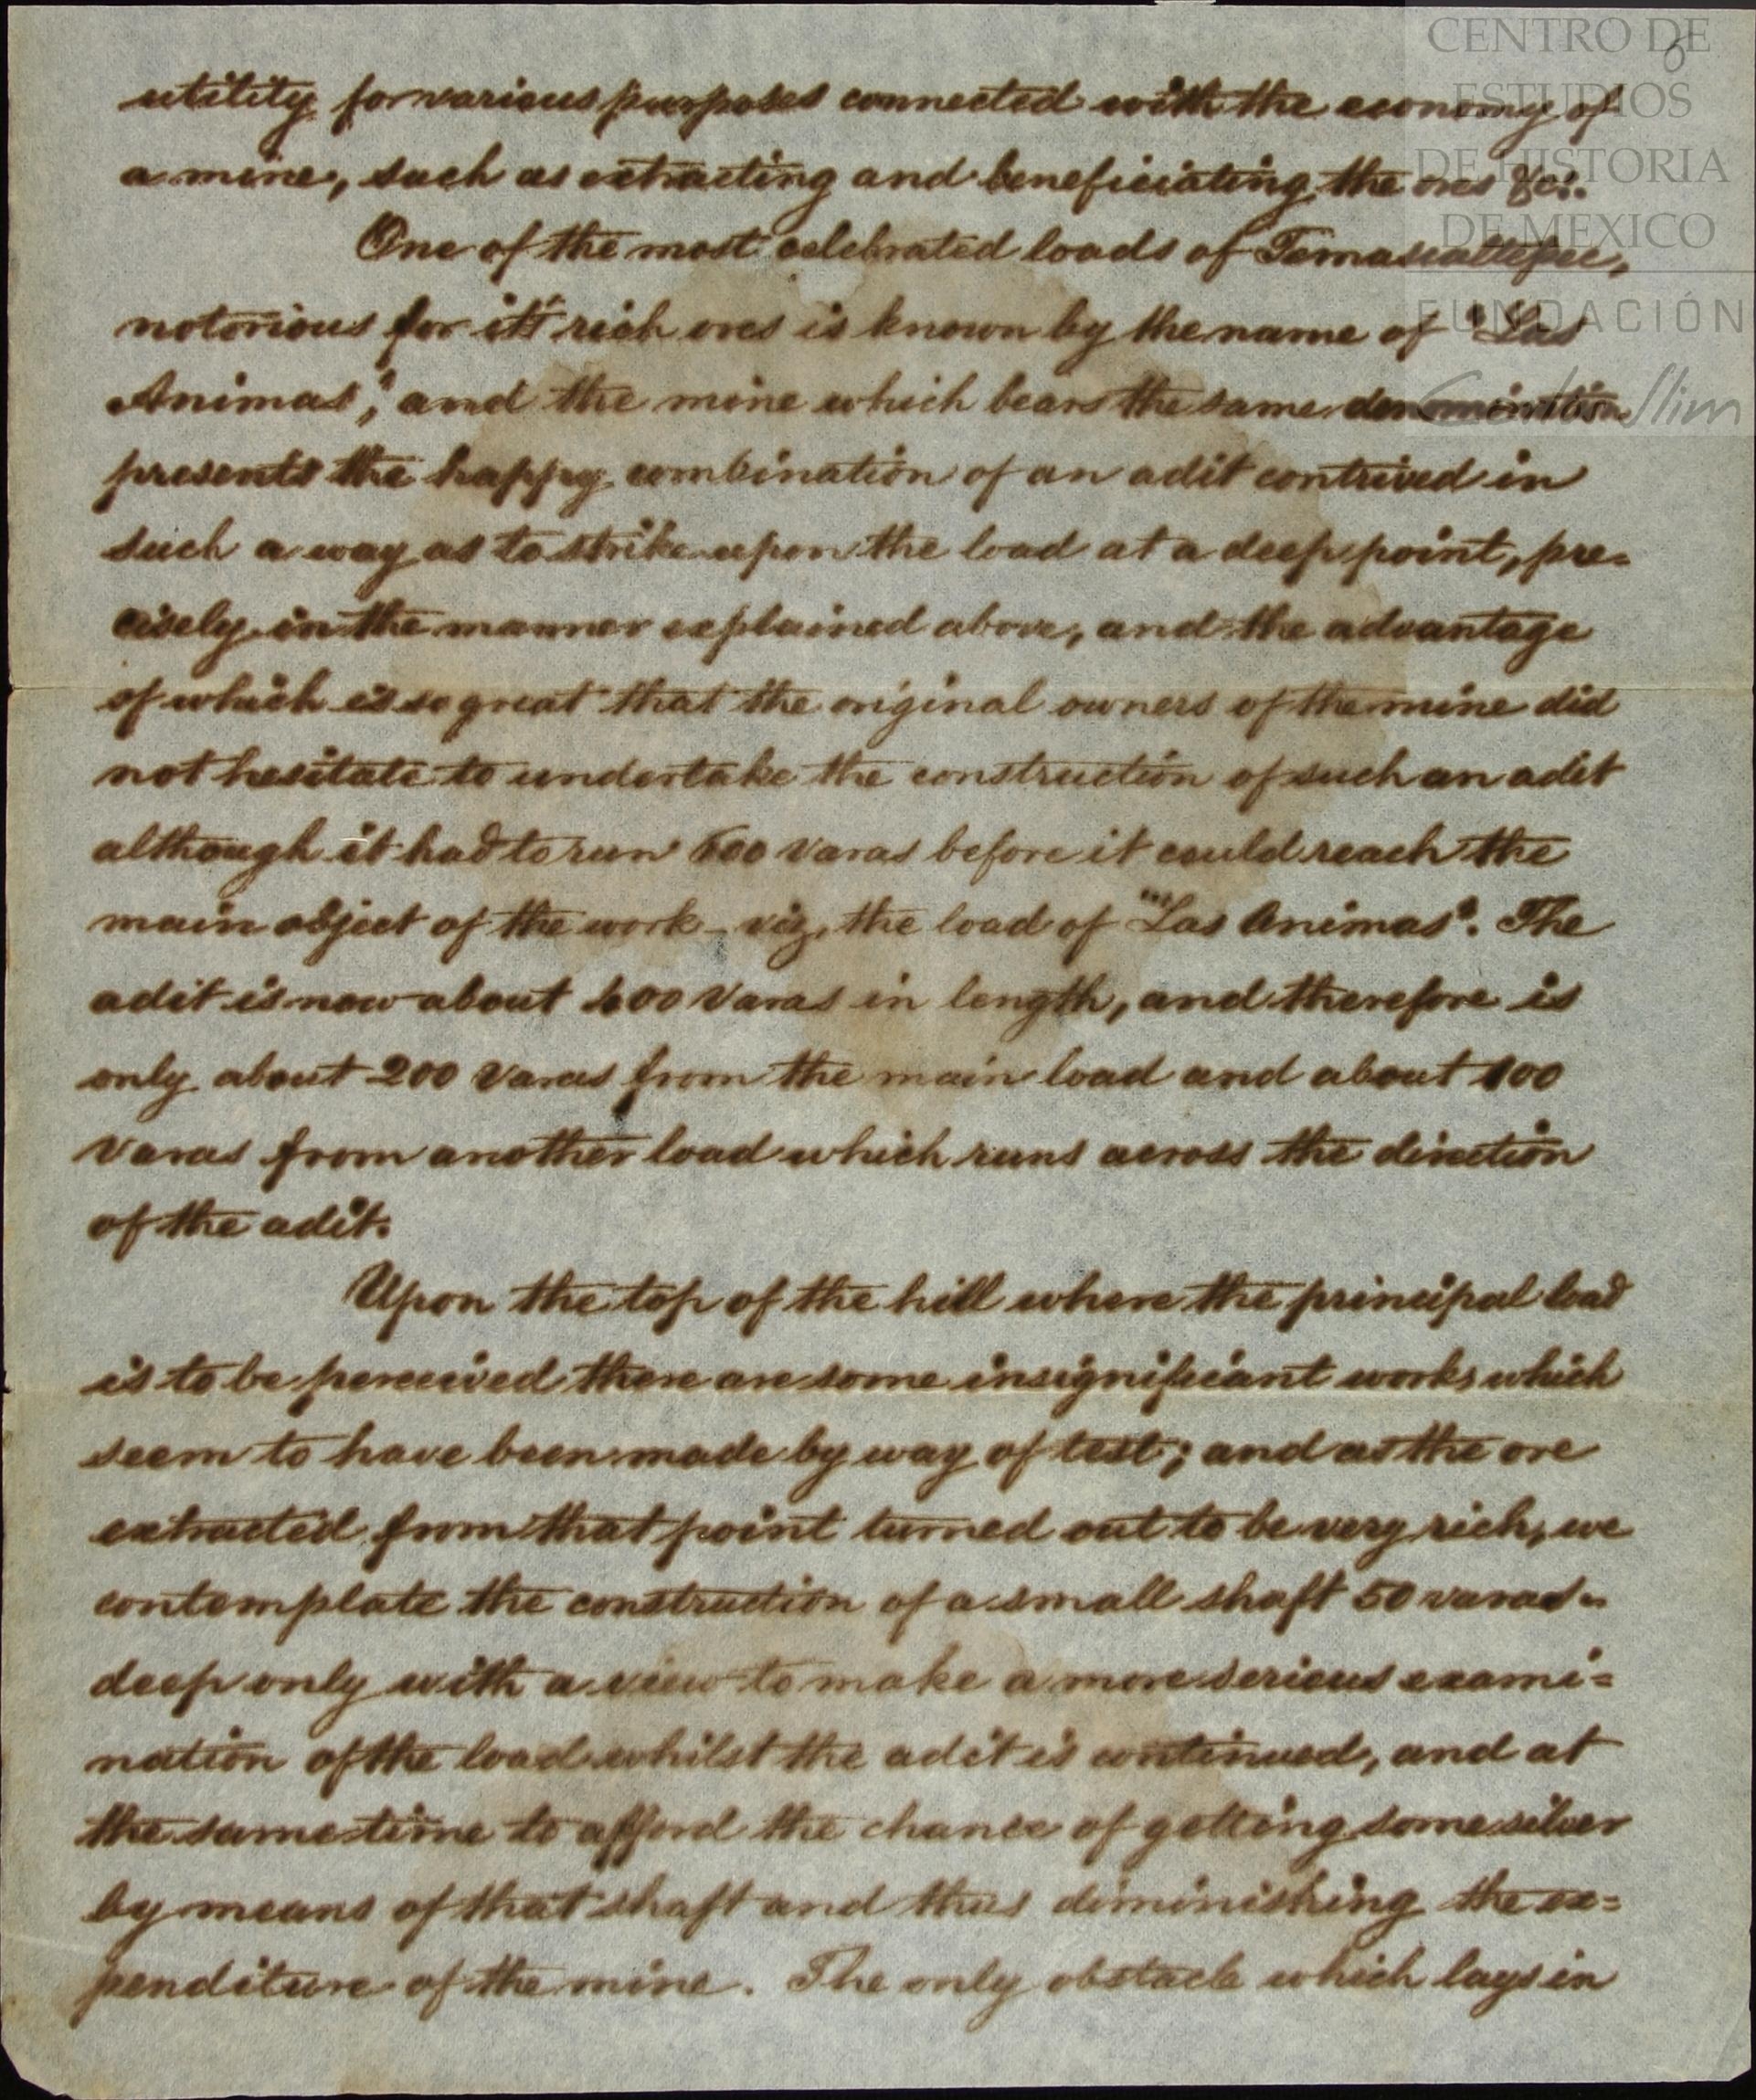 6
utility for various purposes connected with the economy of
a mine, such as extracting and beneficiating the ores &c.
One of the most celebrated loads of Temascaltepec,
notorious for it's rich ores is known by the name of "Las
Animas," and the mine which bears the same denomination
presents the happy combination of an adit contrived in
such a way as to strike upon the load at a deep point, pre=
cisely in the manner explained above, and the advantage
of which is so great that the original owners of the mine did
not hesitate to undertake the construction of such an adit
although it had to run 600 varas before it could reach the
main object of the work – viz, the load of "Las Animas". The
adit is now about 400 varas in length, and therefore is
only about 200 varas from the main load and about 100
varas from another load which runs across the direction
of the adit.
Upon the top of the hill where the principal load
is to be perceived there are some insignificant works which
seem to have been made by way of test; and as the ore
extracted from that point turned out to be very rich, we
contemplate the construction of a small shaft 50 varas
deep only with a view to make a more serious exami=
nation of the load whilst the adit is continued, and at
the same time to afford the chance of getting some silver
by means of that shaft and thus diminishing the ex=
penditure of the mine. The only obstacle which lays in
CENTRO DE
ESTUDIOS
DE HISTORIA
DE MEXICO
FUNDACIÓN
Carlos Slim